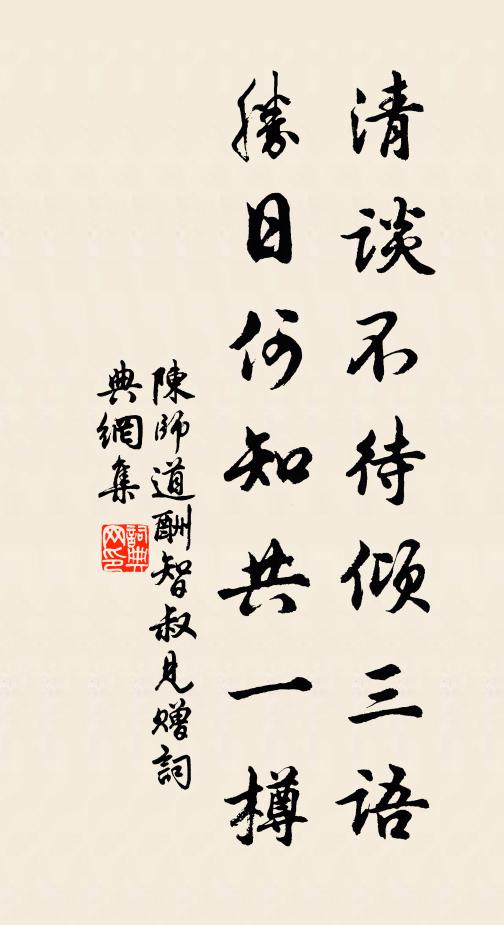 清談不待傾三語
勝日何知共一樽
陳師道酬智叔見贈詞
典網集
詞典
网印